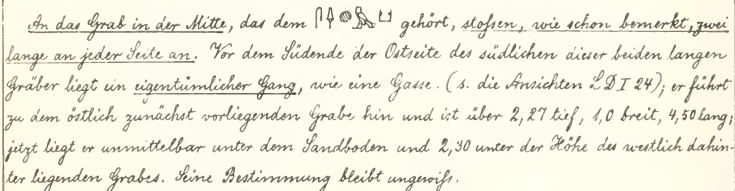 An das Grab in der Mitte, das dem gehört, stoßen, wie schon bemerkt, zwei
lange an jeder Seite an. Vor dem Südende der Ostseite des südlichen dieser beiden langen
Gräber liegt ein eigentümlicher Gang, wie eine Gasse. (s. die Ansichten LD I 24); er führt
zu dem östlich zunächst vorliegenden Grabe hin und ist über 2,27 tief, 1,0 breit, 4,50 lang;
jetzt liegt er unmittelbar unter dem Sandboden und 2,30 unter der Höhe des westlich dahin-
ter liegenden Grabes. Seine Bestimmung bleibt ungewiß.